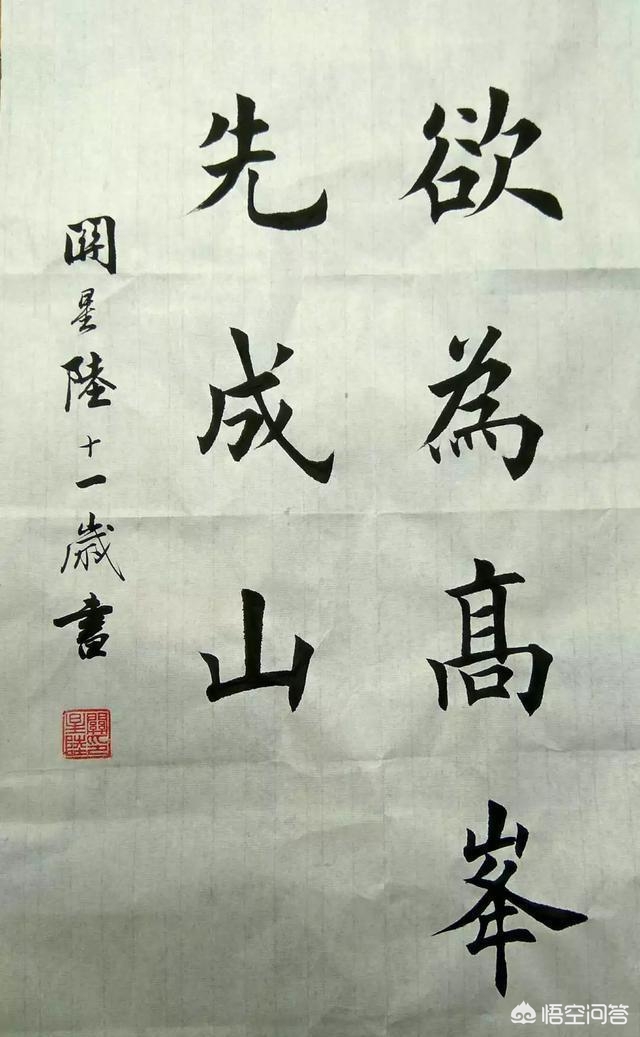 欲為髙峯
先成山
関星陸十一歲書
關星陸印
悟空问答